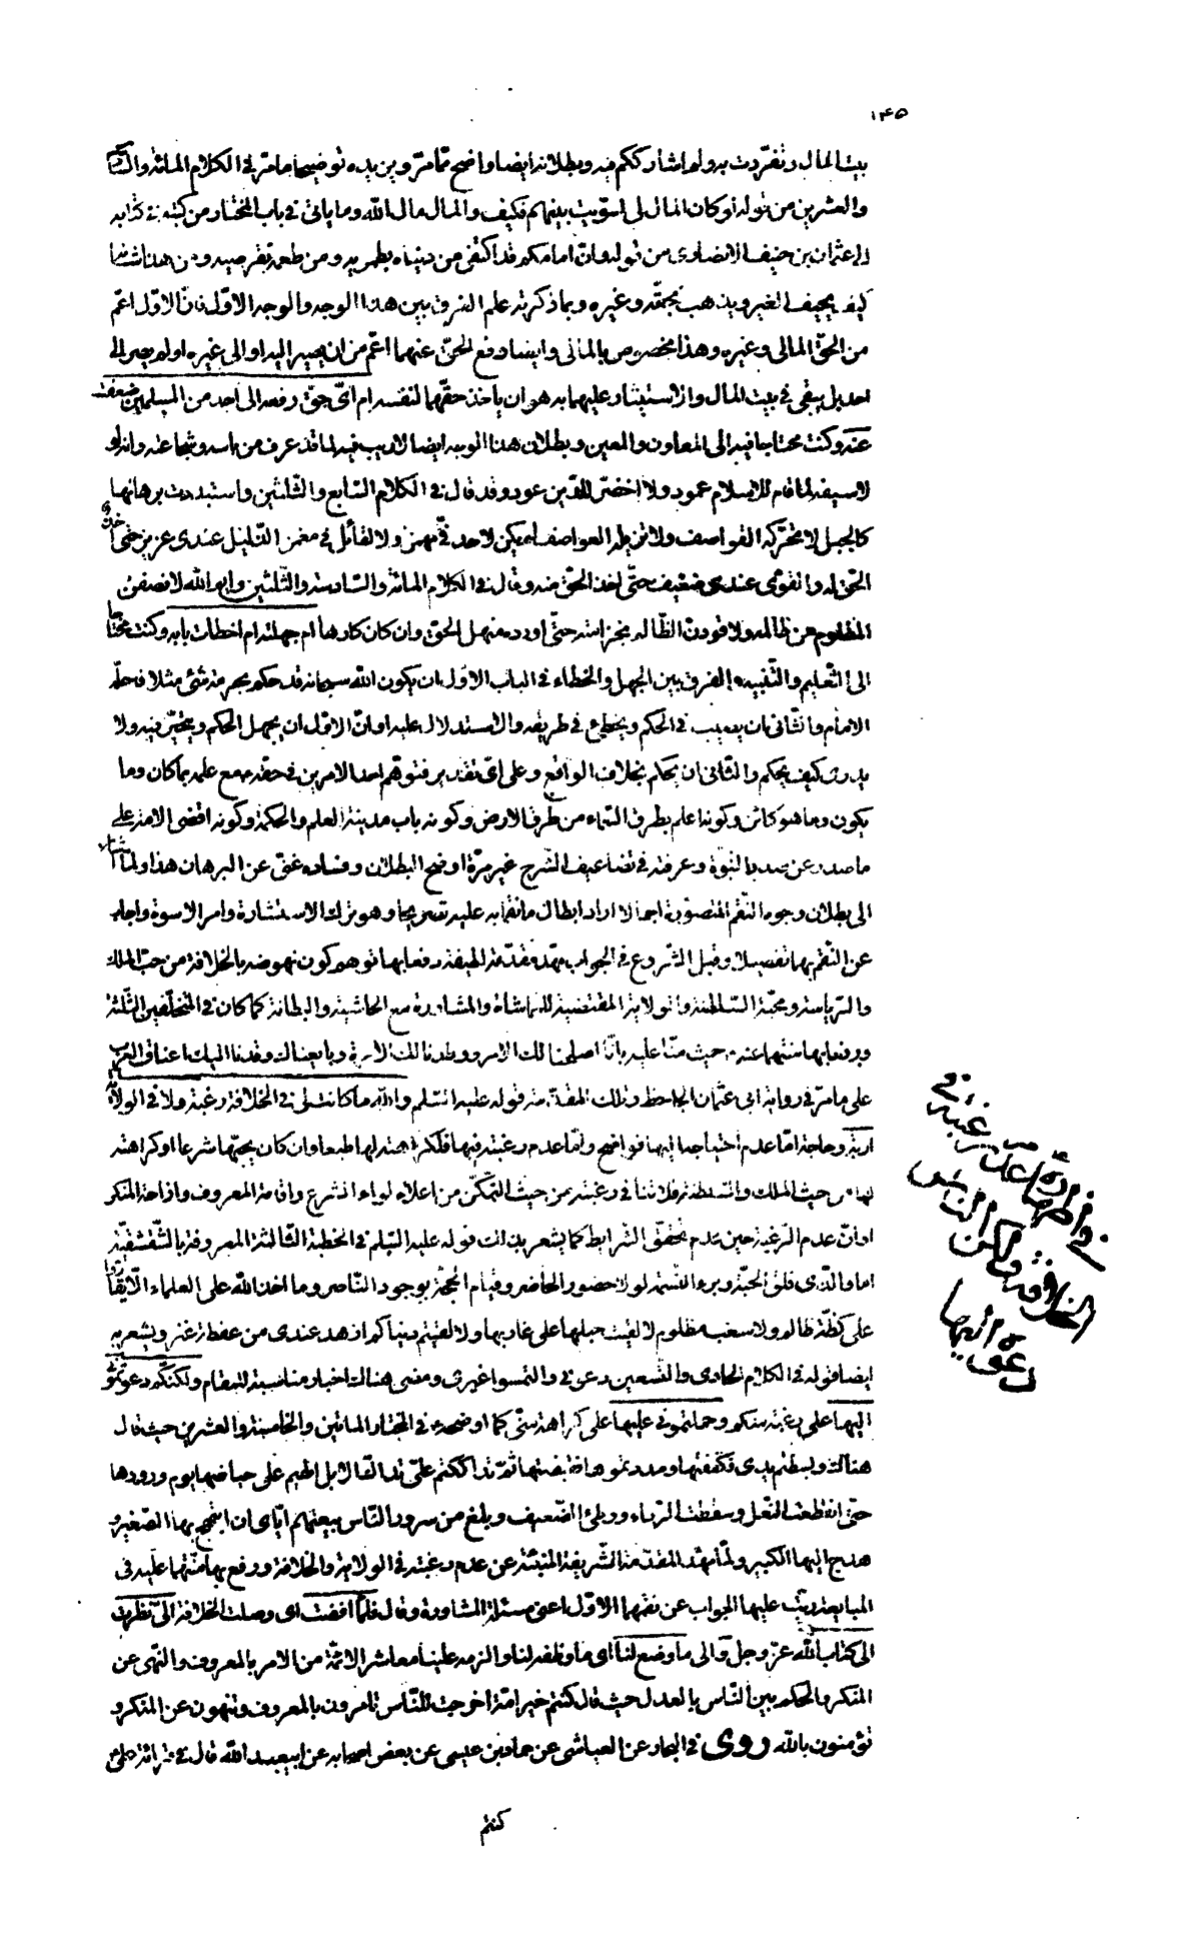 ١٤٥
بيت المال وتفرّدت به ولم اشارككم فيه وبطلانه ايضا واضح ممّا مرّ ويزيده توضيحا ما مرّ في الكلام المائة والسادس
والعشرين من قوله لو كان المال لى لسوّيت بينهم فكيف والمال مال الله وما ياتى في باب المختار من كتبه في كتابه
الى عثمان بن حنيف الانصارى من قوله وانّ امامكم قد اكتفى من دنياه بطمريه ومن طعمه بقرصيه ومن هذا شانه
كيف يحيف الغير ويذهب بحقّه وغيره وبما ذكرته علم الفرق بين هذا الوجه والوجه الاوّل فانّ الاوّل اعمّ
من الحقّ المالى وغيره وهذا مخصوص بالمالى وايضا دفع الحقّ عنهما اعمّ من ان يصير اليه او الى غيره او لم يصر الى
احد بل يبقى في بيت المال والاستيثار عليهما به هو ان ياخذ حقّهما لنفسه ام اىّ حق رفعه الى احد من المسلمين ضعفت
عنه وكنت محتاجا فيه الى المعاون والمعين وبطلان هذا الوجه ايضا لا ريب فيه لما قد عرف من باسه وشجاعته وانه لو
لا سيفه لما قام للاسلام عمود ولا اخضرّ للدّين عود وقد قال في الكلام السّابع والثلثين واستبددت برهانها
كالجبل لا تحرّكه القواصف ولا تزيله العواصف لم يكن لاحد فيّ مهمز ولا لقائل فيّ مغمز الذّليل عندى عزيز حتّى آخذ
الحقّ له والقوىّ عندى ضعيف حتّى آخذ الحقّ منه وقال في الكلام المائة والسّادسة والثّلثين وايم الله لانصفنّ
المظلوم من ظالمه ولاقودنّ الظّالم بخزامته حتّى اورده منهل الحقّ وان كان كارها ام جهلته ام اخطات بابه وكنت محتاجا
الى التّعليم والتّنبيه والفرق بين الجهل والخطاء في الباب الاوّل ان يكون الله سبحانه قد حكم بحرمة شئ مثلا فاحلّه
الامام والثّانى ان يصيب في الحكم ويخطئ في طريقه والاستدلال عليه او انّ الاوّل ان يجهل الحكم ويتحيّر فيه ولا
يدرى كيف يحكم والثّانى ان يحكم بخلاف الواقع وعلى اىّ تقدير فتوهّم احد الامرين في حقه مع علمه بما كان وما
يكون وما هو كائن وكونه اعلم بطرق السّماء من طرق الارض وكونه باب مدينة العلم والحكمة وكونه اقضى الامة على
ما صدر عن صدر النبوّة وعرفته في تضاعيف الشّرح غير مرّة اوضح البطلان وفساده غنىّ عن البرهان هذا ولمّا اشار
الى بطلان وجوه النّقم المتصوّرة اجمالا اراد ابطال ما نقما به عليه تصريحا وهو ترك الاستشارة وامر الاسوة واجاب
عن النّقم بها تفصيلا وقبل الشّروع في الجواب مهّد مقدّمة لطيفة دفعا بها توهم كون نهوضه بالخلافة من حبّ الملك
والرّياسة ومحبّة السّلطنة والولاية المقتضية للمماشاة والمشاورة مع الحاشية والبطانة كما كان في المتخلّفين الثّلثة
ودفعا بها منّتهما عنه حيث منّا عليه بانّا اصلحنا لك الامر ووطدنا لك الامرة وبايعناك وقدنا اليك اعناق العرب
على ما مرّ في رواية ابى عثمان الجاحظ وتلك المقدّمة قوله عليه السّلم والله ما كانت لى في الخلافة رغبة ولا في الولاية
اربة وحاجة امّا عدم احتياجه اليها فواضح وامّا عدم رغبته فيها فلكراهته لها طبعا وان كان يحبّها شرعا او كراهته
لها من حيث الملك والسّلطنة فلا تنافى رغبته من حيث التمكّن من اعلاء لواء الشرع واقامة المعروف وازاحة المنكر
او انّ عدم الرّغبة حين عدم تحقّق الشرايط كما يشعر بذلك قوله عليه السّلم في الخطبة الثّالثة المعروفة بالشّقشقيّة
اما والّذى فلق الحبّة وبرء النّسمة لولا حضور الحاضر وقيام الحجّة بوجود النّاصر وما اخذ الله على العلماء الّا يقارّوا
على كظّة ظالم ولا سغب مظلوم لالقيت حبلها على غاربها ولالفيتم دنياكم ازهد عندى من عفطة عنز ويشعر به
ايضا قوله في الكلام الحادى والتّسعين دعونى والتمسوا غيرى ومضى هنالك اخبار مناسبة للمقام ولكنّكم دعوتمونى
اليها على رغبة منكم وحملتمونى عليها على كراهة منّى كما اوضحه في المختار المائتين والخامسة والعشرين حيث قال
هنالك وبسطتم يدى فكففتها ومددتموها فقبضتها ثمّ تداككتم علىّ تداكّ الابل الهيم على حياضها يوم ورودها
حتّى انقطعت النّعل وسقطت الرّداء ووطئ الضّعيف وبلغ من سرور النّاس ببيعتهم ايّاى ان ابتهج بها الصّغير و
هدج اليها الكبير ولمّا مهّد المقدّمة الشّريفة المنبئة عن عدم رغبته في الولاية والخلافة ودفع بها منّتهما عليه في
المبايعة رتّب عليها الجواب عن نقمهما الاوّل اعنى مسئلة المشاورة وقال فلمّا افضت اى وصلت الخلافة الىّ نظرت
الى كتاب الله عزّ وجلّ والى ما وضع لنا اى ما وظفه لنا والزمه علينا معاشر الائمّة من الامر بالمعروف والنّهى عن
المنكر والحكم بين النّاس بالعدل حيث قال كنتم خير امّة اخرجت للنّاس تامرون بالمعروف وتنهون عن المنكر و
تؤمنون بالله روى في البحار عن العياشى عن حماد بن عيسى عن بعض اصحابه عن ابيعبد الله قال في قرائة علىّ
كنتم
الخلافة ولكن النّاس
دعوه اليها